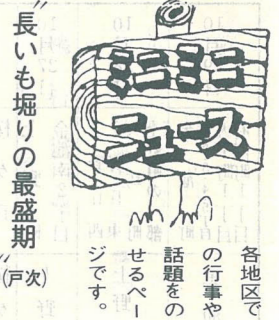 ミニミニ
ニュース
各地区で
の行事や
話題をの
せるペー
ジです。
〝長いも堀りの最盛期〟
(戸次)